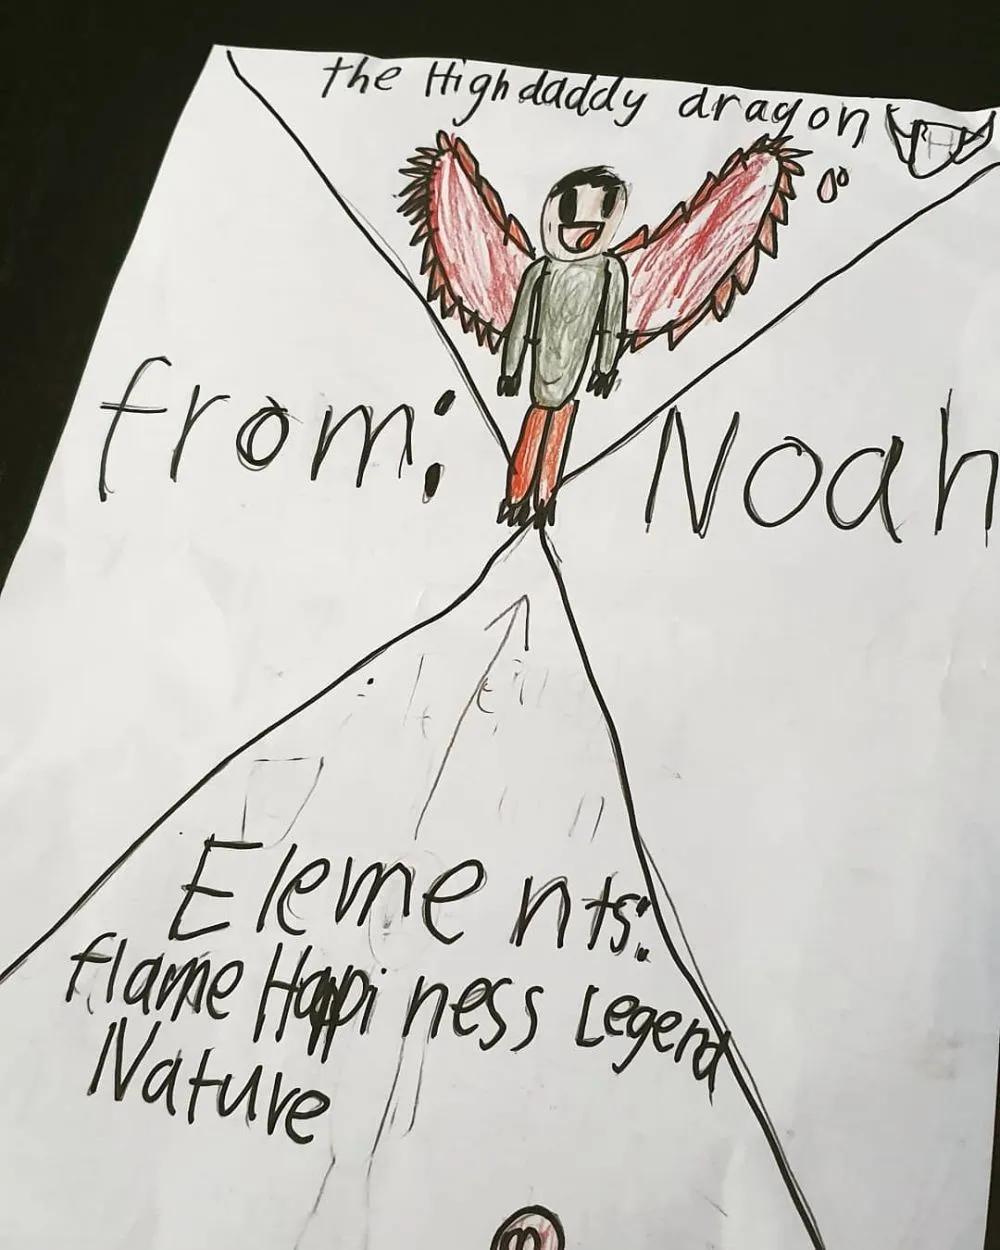 the Highdaddy dragon
from: Noah
Elements:
flame Happiness Legend
Nature